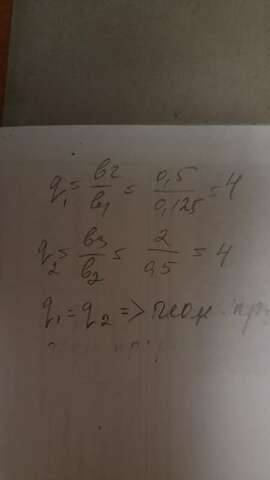 q₁ = в2/в1 = 0,5/0,125 = 4
q₂ = в3/в2 = 2/0,5 = 4
q₁ = q₂ => геом. пр